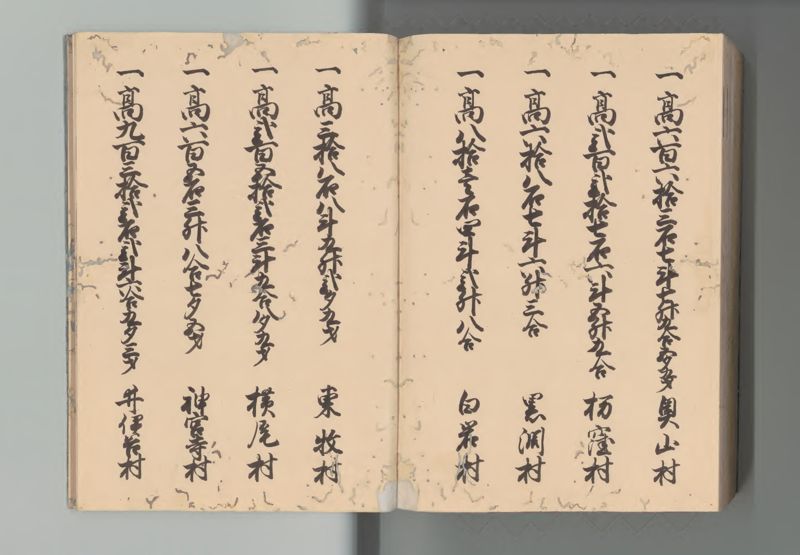 一高六百六拾三石七斗七升五合 奥山村
一高弐百弐拾七石六斗五升五合 栃窪村
一高六拾八石七斗一升三合 黒渕村
一高八拾壱石四斗弐升八合 白岩村
一高三拾八石八斗五升弐夕五才 東牧村
一高弐百五拾弐石三斗五合八夕五才 横尾村
一高六百五石三升八合七夕五才 神宮寺村
一高九百三拾弐石弐斗六合五夕三才 井伊谷村